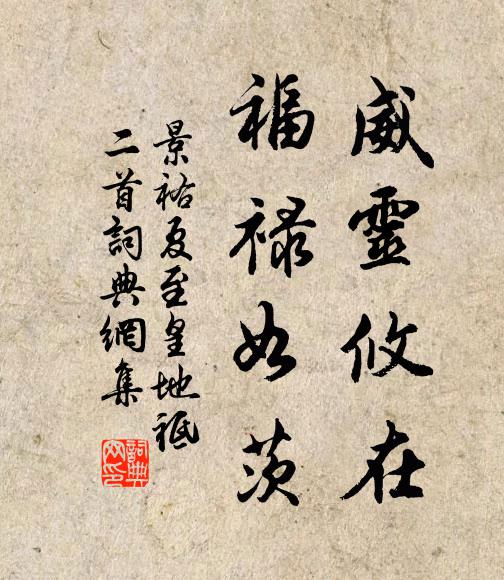 威靈攸在
福祿如茨
景祐夏至皇地祇
二首詞典網集
詞典
网印